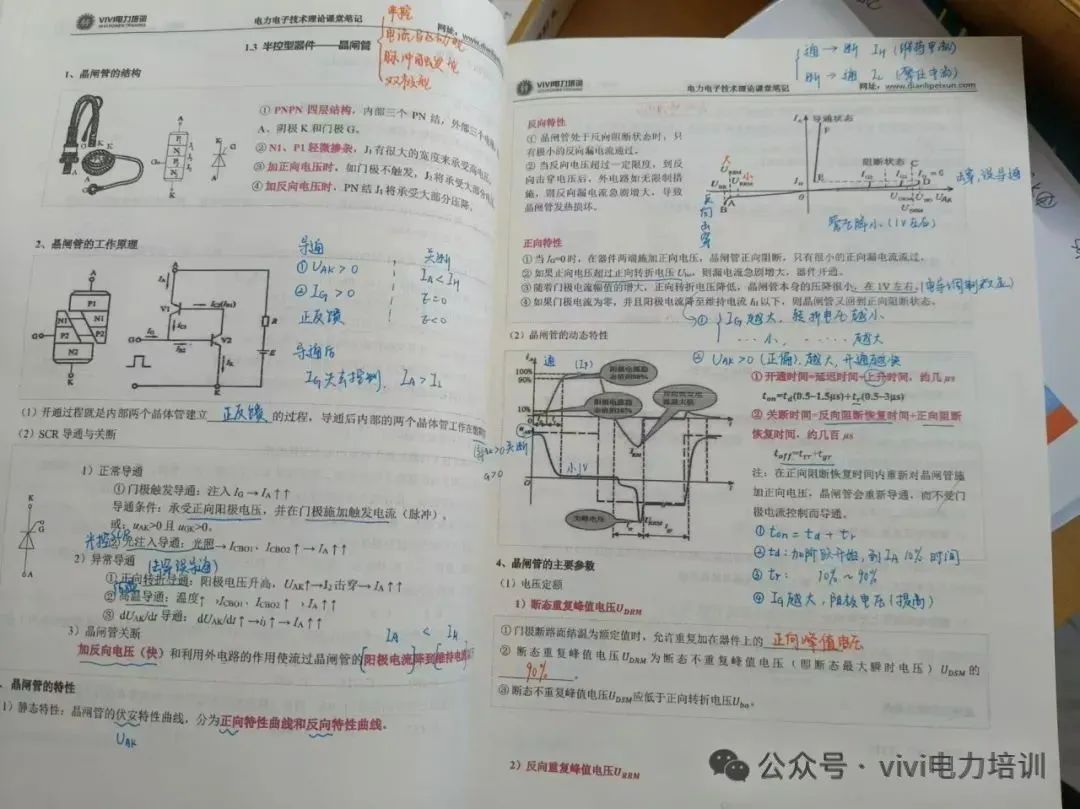 VIVI电力培训
电力电子技术理论课堂笔记
网址：www.dianli
1.3 半控型器件——晶闸管
半控
脉冲触发
双极型
1、晶闸管的结构
① PNPN 四层结构，内部三个 PN 结，外部三个电
A、阴极 K 和门极 G。
② N1、P1 轻微掺杂，J₁有很大的宽度来承受高电压
③ 加正向电压时，如门极不触发，J₂将承受大部分
④ 加反向电压时，PN 结 J₁将承受大部分压降。
2、晶闸管的工作原理
导通
① UAK > 0
② IG > 0
正反馈
导通后
IG失去控制，IA > IL
关断
IA < IH
（1）开通过程就是内部两个晶体管建立 正反馈 的过程，导通后内部的两个晶体管工作在
（2）SCR 导通与关断
1）正常导通
①门极触发导通：注入 IG → IA↑↑
导通条件：承受正向阳极电压，并在门极施加触发电流（脉冲）。
或：uAK>0 且 uGK>0。
光控SCR
②光注入导通：光照→ICBO1、ICBO2↑→IA↑↑
2）异常导通
(击穿误导通)
① 正向转折导通：阳极电压升高，UAK↑→J₂击穿→IA↑↑
② 高温导通：温度↑，ICBO1、ICBO2↑，IA↑↑
③ dUAK/dt 导通：dUAK/dt↑→ij↑→IA↑↑
3）晶闸管关断
IA < IH
加反向电压（快）和利用外电路的作用使流过晶闸管的阳极电流降到维持电流
、晶闸管的特性
1）静态特性：晶闸管的伏安特性曲线，分为正向特性曲线和反向特性曲线。
UAK
通→断 IH (维持电流)
断→通 IL (擎住电流)
VIVI电力培训
电力电子技术理论课堂笔记
网址：www.dianlipeixun.com
反向特性
① 晶闸管处于反向阻断状态时，只
有极小的反向漏电流通过。
② 当反向电压超过一定限度，到反
向击穿电压后，外电路如无限制措
施，则反向漏电流急剧增大，导致
晶闸管发热损坏。
导通状态
阻断状态
大
小
反向击穿
管压降小（1V左右）
正向特性
① 当 IG=0 时，在器件两端施加正向电压，晶闸管正向阻断，只有很小的正向漏电流流过。
② 如果正向电压超过正向转折电压 Ubo，则漏电流急剧增大，器件开通。
③ 随着门极电流幅值的增大，正向转折电压降低，晶闸管本身的压降很小，在 1V 左右。(电导调制效应)
④ 如果门极电流为零，并且阳极电流降至维持电流 IH 以下，则晶闸管又回到正向阻断状态。
① IG越大，转折电压越小
小，……越大
② UAK>0 (正偏)，越大，开通越快
（2）晶闸管的动态特性
通
100%
90%
10%
阳极电流稳态值的90%
阳极电流稳态值的10%
尖峰电压
① 开通时间=延迟时间+上升时间，约几 μs
ton=td(0.5-1.5μs)+tr(0.5-3μs)
② 关断时间=反向阻断恢复时间+正向阻断
恢复时间，约几百 μs
toff=trr+tgr
注：在正向阻断恢复时间内重新对晶闸管施
加正向电压，晶闸管会重新导通，而不受门
极电流控制而导通。
① ton = td + tr
② td：加阶跃开始，到IA 10% 时间
③ tr： 10%~90%
④ IG越大，阳极电压(提高)
4、晶闸管的主要参数
（1）电压定额
1）断态重复峰值电压UDRM
①门极断路而结温为额定值时，允许重复加在器件上的 正向峰值电压
② 断态重复峰值电压 UDRM 为断态不重复峰值电压（即断态最大瞬时电压）UDSM 的
90%。
③ 断态不重复峰值电压 UDSM 应低于正向转折电压 Ubo。
2）反向重复峰值电压URRM
公众号·vivi电力培训